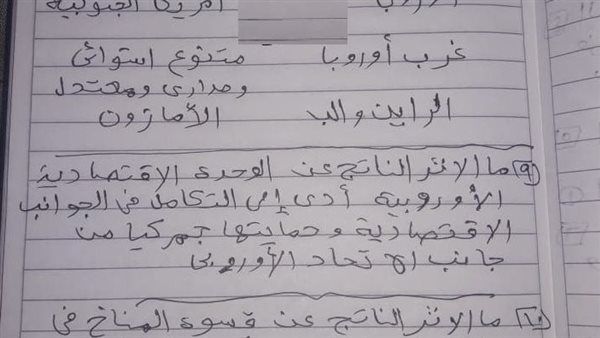 أوروبا أمريكا الجنوبية
غرب أوروبا متنوع استوائى
ومدارى ومعتدل
الراين والب الأمازون
٩) ما الاثر الناتج عن الوحدة الاقتصادية
الأوروبية أدى إلى التكامل فى الجوانب
الاقتصادية وحمايتها جمركيا من
جانب الاتحاد الأوروبى
١٠) ما الاثر الناتج عن قسوة المناخ فى